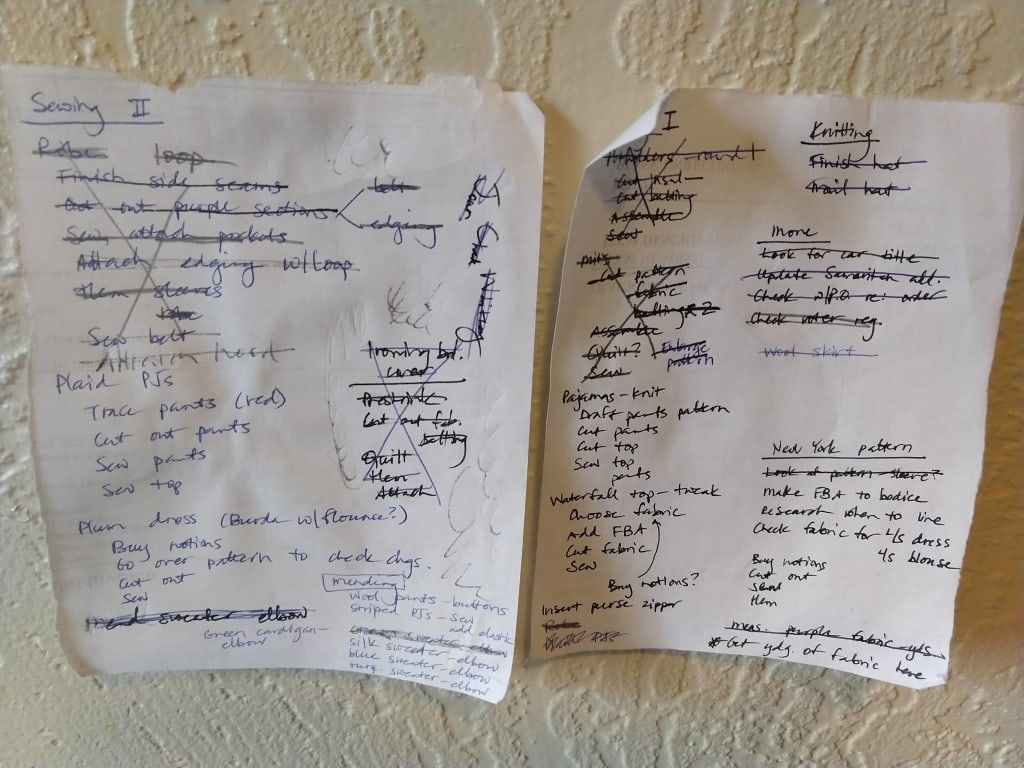 Sewing II
Robe loop
Finish side seams
Cut out purple sections
belt
edging
Sew, attach pockets
Attach edging w/loop
Hem sleeves
Sew belt
Attach hood
Plaid PJs
Trace pants (red)
Cut out pants
Sew pants
Sew top
Ironing bd.
cover
Cut out fab.
batting
Quilt
Hem
Attach
Plum dress (Burda w/flounce?)
Buy notions
Go over pattern to check chgs.
Cut out
Sew
mend sweater elbow
Green cardigan-
elbow
mending
wool pants-buttons
striped PJs - sew
add elastic
green sweater elbow
silk sweater-elbow
blue sweater-elbow
turq. sweater-elbow
I
Potholders - round 1
Cut batting
Assemble
Sew
Mitts
Cut pattern
fabric
batting x 2
Assemble
Quilt?
Enlarge
pattern
Sew
Pajamas - knit
Draft pants pattern
Cut pants
Cut top
Sew top
pants
Waterfall top - tweak
Choose fabric
Add FBA
Cut fabric
Sew
Buy notions?
Insert purse zipper
Robe
Knitting
Finish hat
Trail hat
More
Look for car title
Update Samaritan all.
Check w/P.O. re: order
Check voter reg.
Wool skirt
New York pattern
Look at pattern - sleeve?
Make FBA to bodice
Research when to line
Check fabric for 4/s dress
4/s blouse
Buy notions
Cut out
Sew
Hem
meas. purple fabric - yds
*Get ydg. of fabric here